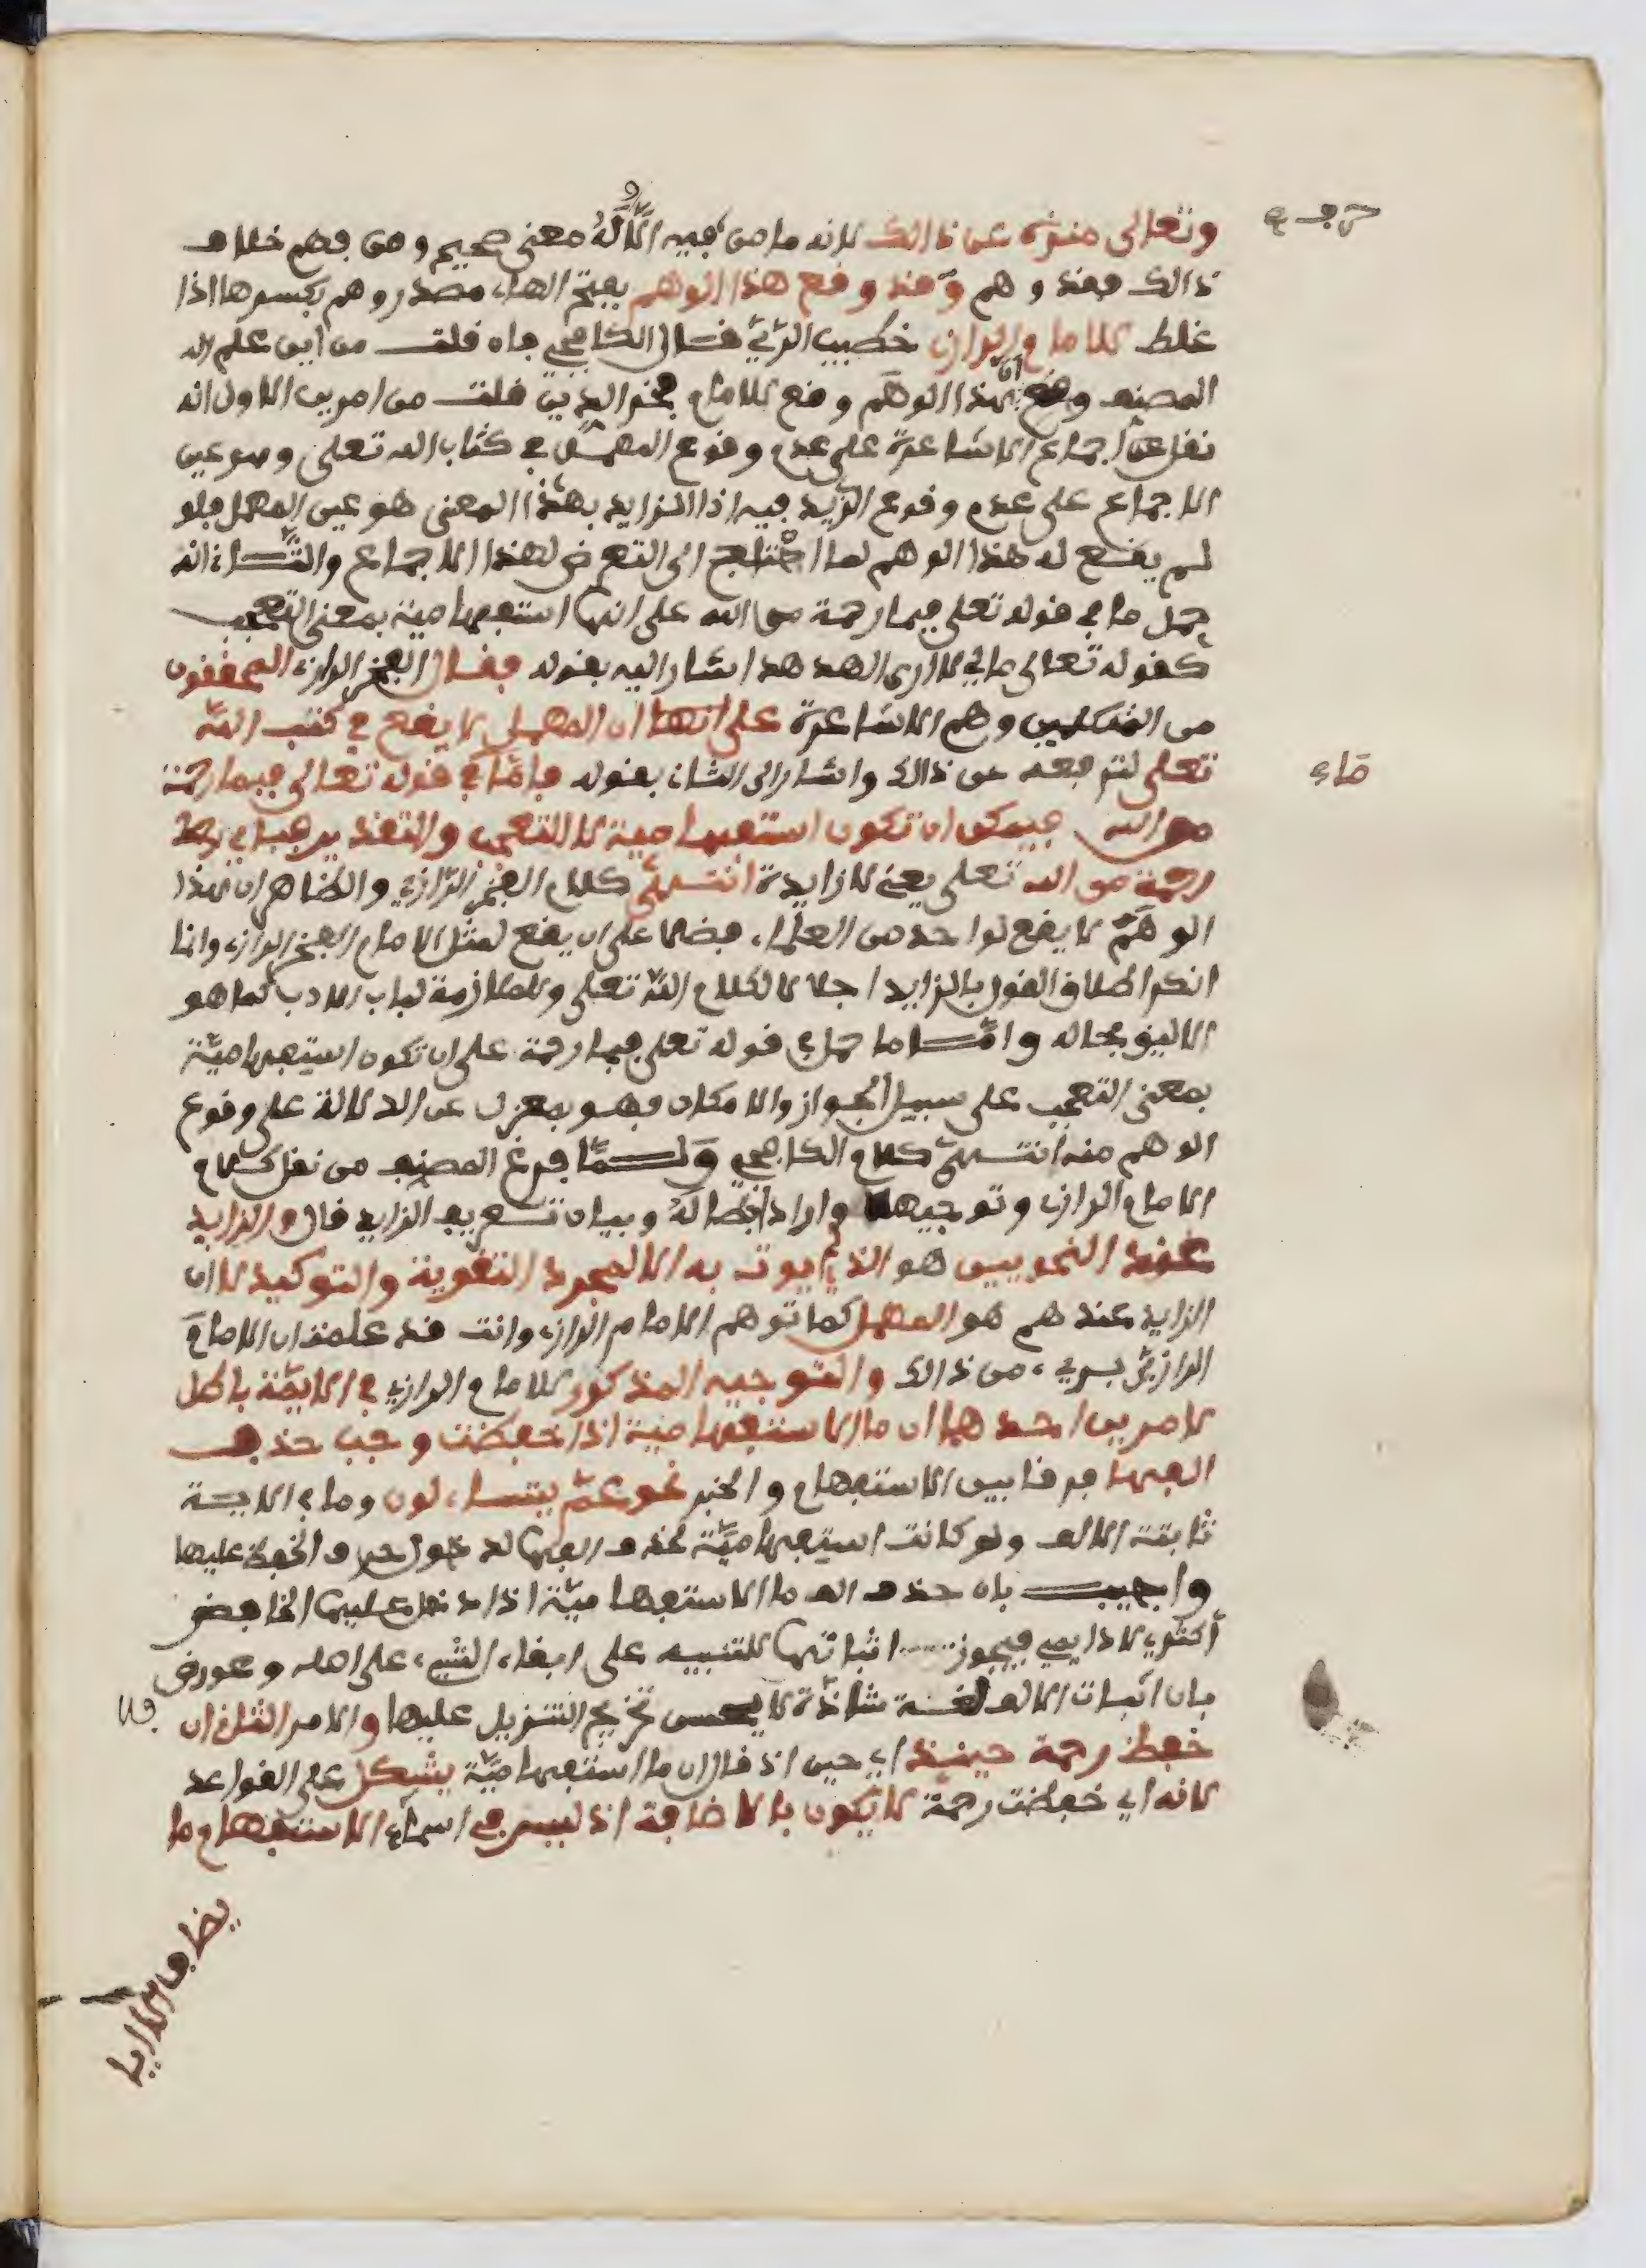 حرف
وتعالى منزه عن ذالك لانه ما من فيه الا وله معنى صحيح ومن فهم خلاف
ذالك فقد وهم وقد وقع هذا الوهم بفتح الهاء مصدر وهم بكسرها اذا
غلط للامام الرازي خطيب الري قال الكافيجي فان قلت من اين علم ان
المصنف وقع ان هذا الوهم وقع للامام فخر الدين قلت من امرين الاول انه
نقل عن اجماع الاشاعرة على عدم وقوع المهمل في كتاب الله تعلى وهو عين
الاجماع على عدم وقوع الزايد فيه اذ الزايد بهذا المعنى هو عين المهمل فلو
لم يقع له هذا الوهم لما احتاج الى التعرض لهذا الاجماع والثاني انه
حمل ما في قوله تعلى فبما رحمة من الله على انها استفهامية بمعنى التعجب
كقوله تعالى مالي لا ارى الهدهد اشار اليه بقوله فقال الفخر الرازي المحققون
من المتكلمين وهم الاشاعرة على ان المهمل لا يقع في كتب الله
تعلى لترفعه عن ذالك واشار الى الثاني بقوله فاما في قوله تعالى فبما رحمة
ماء
من الله فيمكن ان تكون استفهامية للتعجب والتقدير فباي
رحمة من الله تعلى يعني لا زايدة انتهى كلام الفخر الرازي والظاهر ان هذا
الوهم لا يقع لواحد من العلماء فضلا على ان يقع لمثل الامام الفخر الرازي وانما
انكر اطلاق القول بالزايد اجلالا لكلام الله تعلى وللملازمة لباب الادب كما هو
الاليق بحاله واما ما حمل في قوله تعلى فبما رحمة على ان تكون استفهامية
بمعنى التعجب على سبيل الجواز والامكان فهو بمعزل عن الدلالة على وقوع
الوهم منه انتهى كلام الكافيجي ولما فرغ المصنف من نقل كلام
الامام الرازي وتوجيهه واراد ابطاله وبيان تعريف الزايد قال والزايد
عند النحويين هو الذي لم يوت به الا لمجرد التقوية والتوكيد لا ان
الزايد عندهم هو المهمل كما توهم الامام الرازي وانت قد علمت ان الامام
الرازي بريء من ذالك والتوجيه المذكور للامام الرازي في الاية باطل
لامرين احدهما ان ما الاستفهامية اذا خفضت وجب حذف
الفها فرقا بين الاستفهام والخبر نحو عم يتساءلون وما في الاية
ثابتة الالف ولو كانت استفهامية لحذف الفها لدخول حرف الخفض عليها
واجيب بان حذف الف ما الاستفهامية اذا دخل عليها الخافض
اكثري لا دايمي فيجوز اثباتها للتنبيه على ابقاء الشيء على اصله وعورض
بان اثبات الالف لغة شاذة لا يحسن تخريج التنزيل عليها والامر الثاني ان
خفض رحمة حينئذ اي حين اذ قال ان ما استفهامية يشكل على القواعد
لانه اي خفضت رحمة لا يكون بالاضافة اذ ليس في اسماء الاستفهام ما
يضاف الا اي